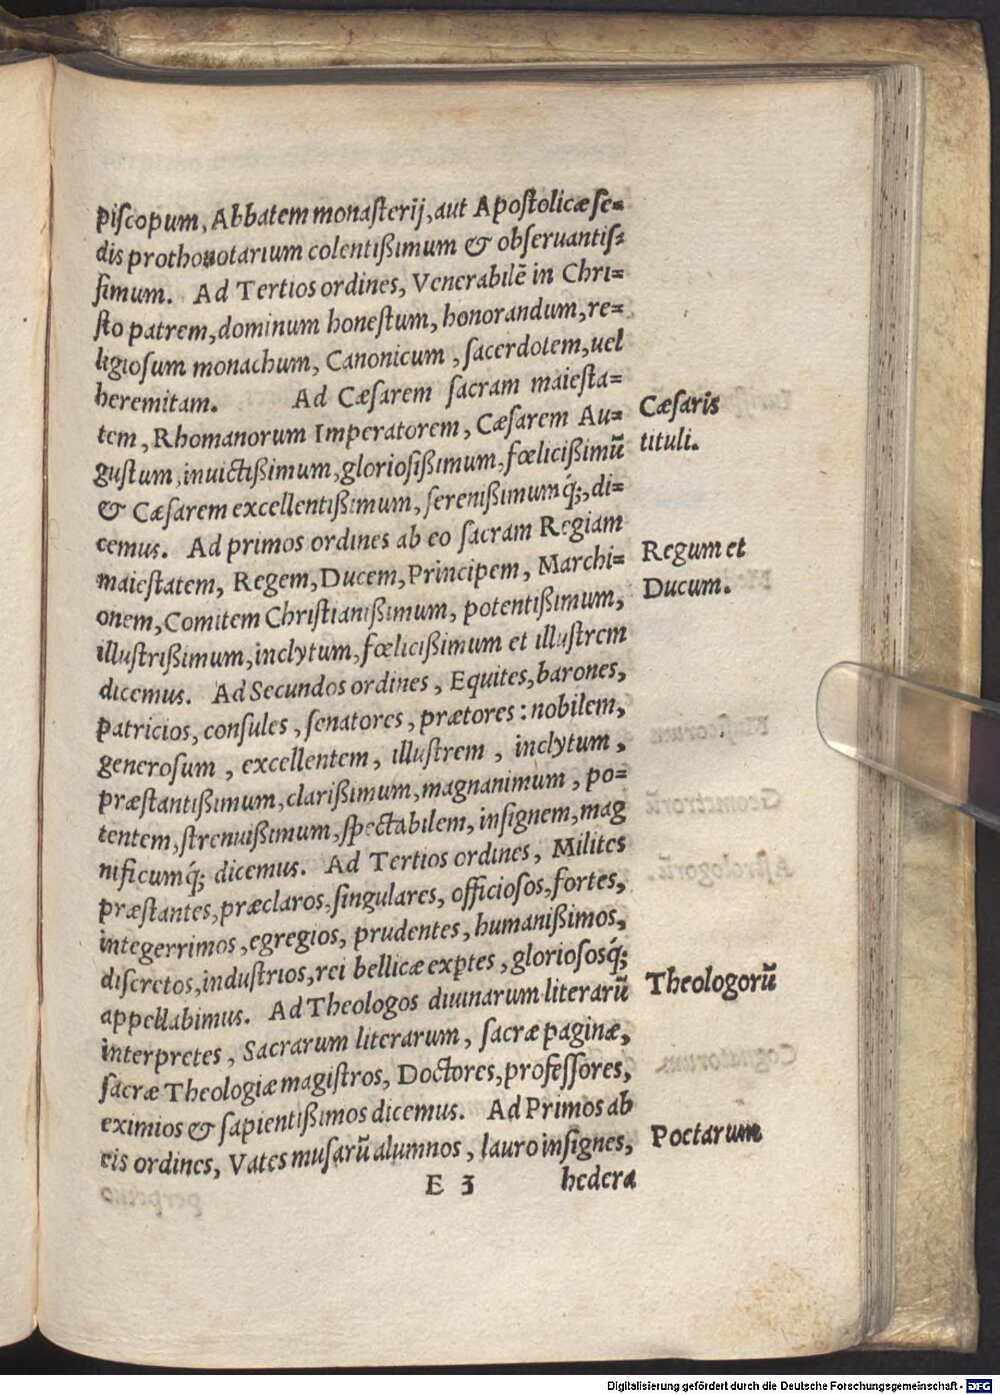 piſcopum, Abbatem monaſterij, aut Apoſtolicæ ſe=
dis prothonotarium colentißimum & obſeruantiſ=
ſimum. Ad Tertios ordines, Venerabilē in Chri=
ſto patrem, dominum honeſtum, honorandum, re=
ligioſum monachum, Canonicum, ſacerdotem, uel
heremitam. Ad Cæſarem ſacram maieſta=
Cæſaris
tem, Rhomanorum Imperatorem, Cæſarem Au=
tituli.
guſtum, inuictißimum, glorioſißimum, fœlicißimū
& Cæſarem excellentißimum, ſerenißimumq́;, di=
cemus. Ad primos ordines ab eo ſacram Regiam
Regum et
maieſtatem, Regem, Ducem, Principem, Marchi=
Ducum.
onem, Comitem Chriſtianißimum, potentißimum,
illuſtrißimum, inclytum, fœlicißimum et illuſtrem
dicemus. Ad Secundos ordines, Equites, barones,
patricios, conſules, ſenatores, prætores: nobilem,
generoſum, excellentem, illuſtrem, inclytum,
præſtantißimum, clarißimum, magnanimum, po=
tentem, ſtrenuißimum, ſpectabilem, inſignem, mag
nificumq́; dicemus. Ad Tertios ordines, Milites
præſtantes, præclaros, ſingulares, officioſos, fortes,
integerrimos, egregios, prudentes, humanißimos,
diſcretos, induſtrios, rei bellicæ exp̱tes, glorioſosq́;
appellabimus. Ad Theologos diuinarum literarū
Theologorū
interpretes, Sacrarum literarum, ſacræ paginæ,
ſacræ Theologiæ magiſtros, Doctores, profeſſores,
eximios & ſapientißimos dicemus. Ad Primos ab
Poetarum
eis ordines, Vates muſarū alumnos, lauro inſignes,
E 3 hedera
Digitalisierung gefördert durch die Deutsche Forschungsgemeinschaft - DFG